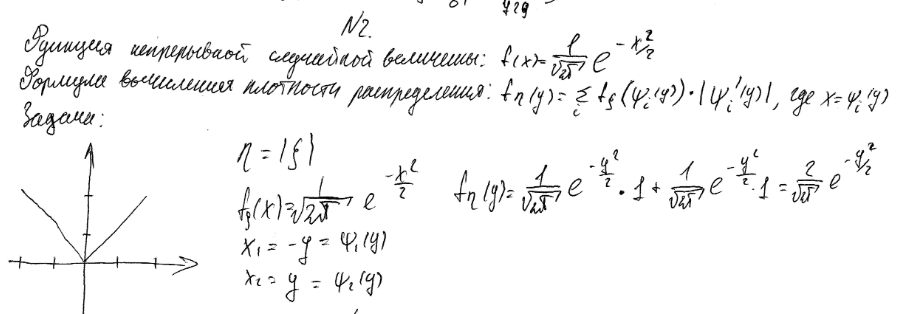 N2.
Функция непрерывной случайной величены: f(x) = 1/√2π e^(-x²/2)
Формула вычисления плотности распределения: fη(y) = Σi fξ(ψi(y))·|ψi'(y)|, где x=ψi(y)
Задача:
η = |ξ|
fξ(x) = 1/√2π e^(-x²/2) fη(y) = 1/√2π e^(-y²/2)·1 + 1/√2π e^(-y²/2)·1 = 2/√2π e^(-y²/2)
x₁ = -y = ψ₁(y)
x₂ = y = ψ₂(y)